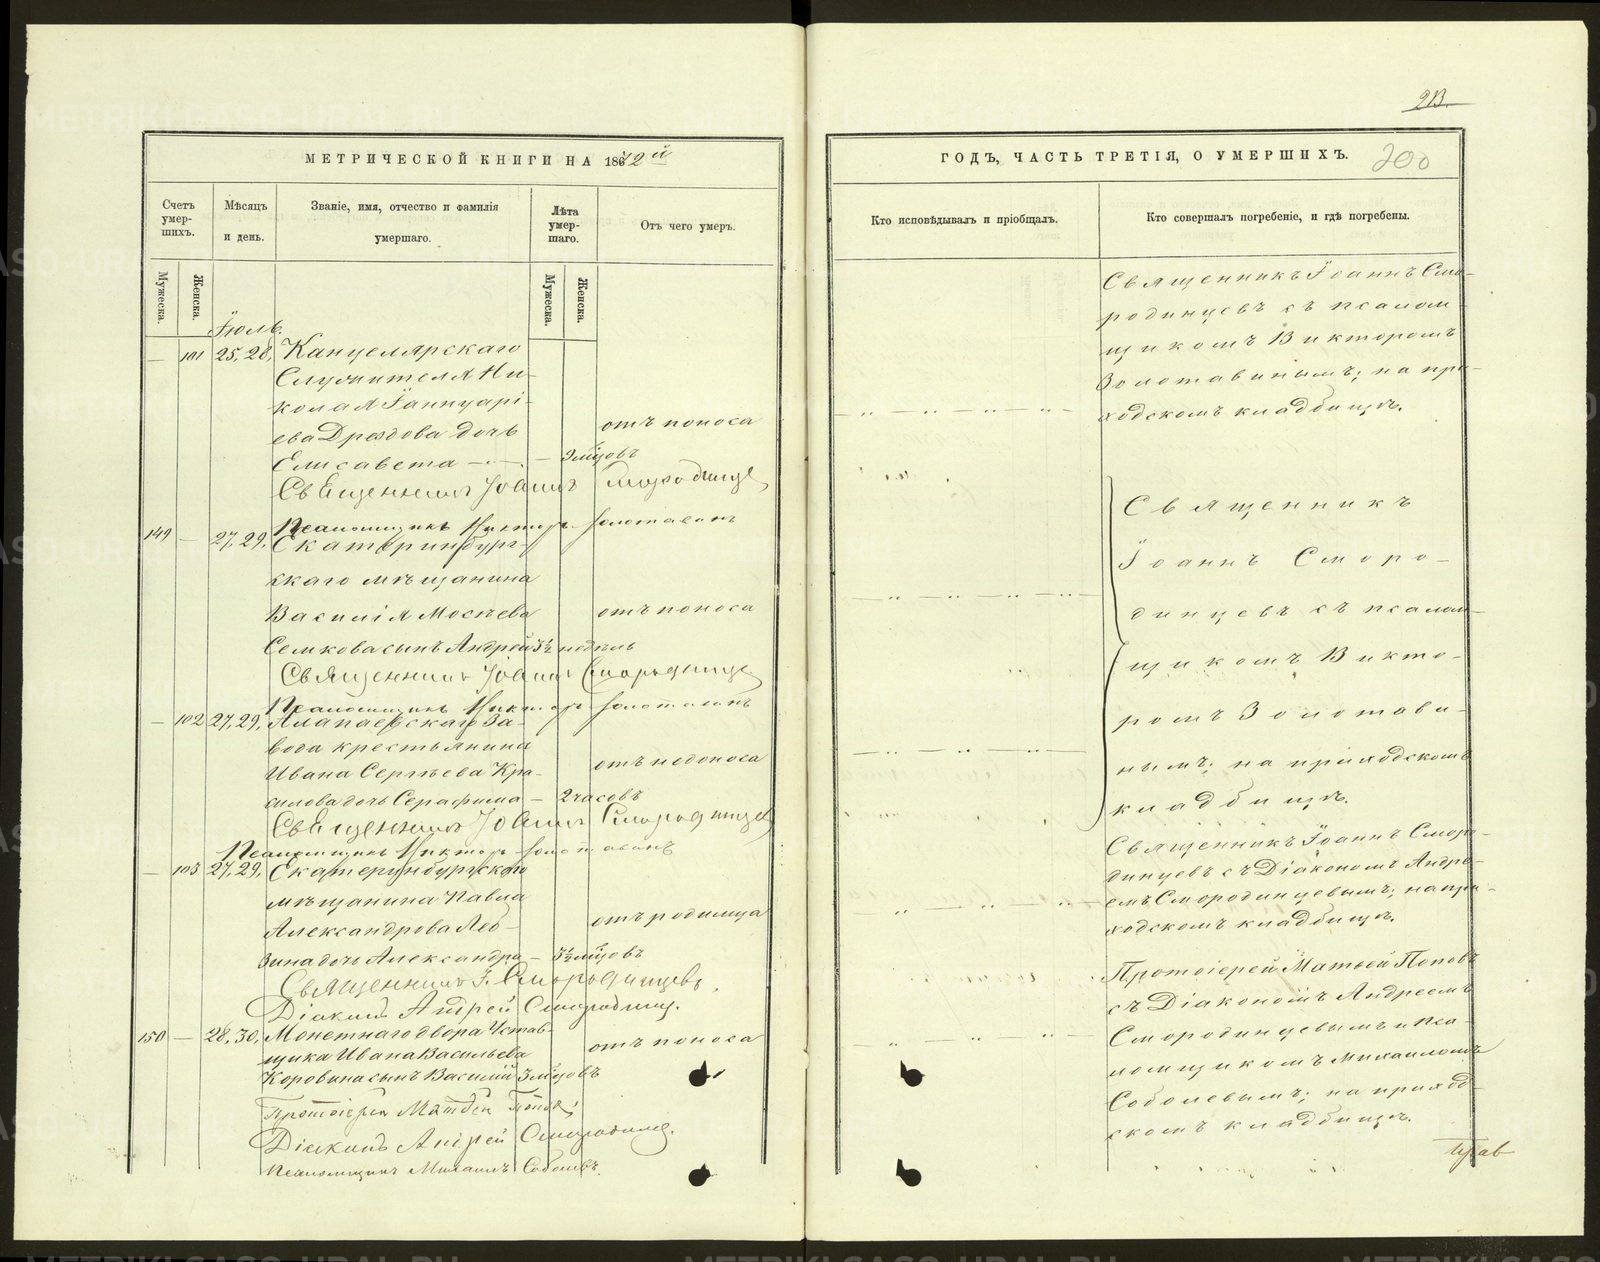 МЕТРИЧЕСКОЙ КНИГИ НА 1872й
Счетъ умер-шихъ.
Мужеска.
Женска.
Мѣсяцъ и день.
Званіе, имя, отчество и фамилія умершаго.
Лѣта умер-шаго.
Мужеска.
Женска.
Отъ чего умеръ.
Іюль.
— 101 25, 28, Канцелярскаго
Служителя Ни-
колая Іаннуарі-
ева Дроздова дочь отъ поноса
Елисавета — 9 мѣсяцовъ
Священникъ Іоаннъ Смородинцевъ
Псаломщикъ Викторъ Золотавинъ
149 — 27, 29, Екатеринбург-
скаго мѣщанина
Василія Мосѣева отъ поноса
Семкова сынъ Андрей 3½ недѣль
Священникъ Іоаннъ Смородинцевъ
Псаломщикъ Викторъ Золотавинъ
— 102 27, 29, Алапаевскаго За-
вода крестьянина
Ивана Сергѣева Кра- отъ недоноса
силова дочь Серафима — 2 часовъ
Священникъ Іоаннъ Смородинцевъ
Псаломщикъ Викторъ Золотавинъ
— 103 27, 29, Екатеринбургскаго
мѣщанина Павла
Александрова Леб- отъ родимца
зина дочь Александра — 3½ мѣсяцовъ
Священникъ І. Смородинцевъ.
Діаконъ Андрей Смородинцевъ.
150 — 28, 30, Монетнаго двора Устав-
щика Ивана Васильева отъ поноса
Коровина сынъ Василій 3 мѣсяцовъ
Протоіерей Матѳей Поповъ
Діаконъ Андрей Смородинцевъ.
Псаломщикъ Михаилъ Соболевъ.
213.
ГОДЪ, ЧАСТЬ ТРЕТІЯ, О УМЕРШИХЪ. 200
Кто исповѣдывалъ и пріобщалъ.
Кто совершалъ погребеніе, и гдѣ погребены.
Священникъ Іоаннъ Смо-
родинцевъ съ псалом-
щикомъ Викторомъ
Золотавинымъ; на при-
ходскомъ кладбищѣ.
Священникъ
Іоаннъ Сморо-
динцевъ съ псалом-
щикомъ Викто-
ромъ Золотави-
нымъ; на приходскомъ
кладбищѣ.
Священникъ Іоаннъ Сморо-
динцевъ съ Діакономъ Андре-
емъ Смородинцевымъ; на при-
ходскомъ кладбищѣ.
Протоіерей Матѳей Поповъ
съ Діакономъ Андреемъ
Смородинцевымъ и пса-
ломщикомъ Михаиломъ
Соболевымъ; на приход-
скомъ кладбищѣ.
METRIKI.GASO-URAL.RU